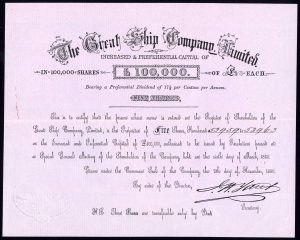 The Great Ship Company, Limited.
INCREASED & PREFERENTIAL CAPITAL OF
IN 100,000 SHARES £100,000. OF £1 EACH.
Bearing a Preferential Dividend of 7½ per Centum per Annum.
FIVE SHARES.
This is to certify that the person whose name is entered on the Register of Shareholders of the
Great Ship Company, Limited, is the Proprietor of FIVE Shares, Numbered 53959 to 53963
in the Increased and Preferential Capital of £100,000, authorised to be issued by Resolution passed at
Special General Meeting of the Shareholders of the Company held on the
Given under the Common Seal of the Company, the
By order of the Directors,
Secretary.
N.B. These Shares are transferable only by Deed